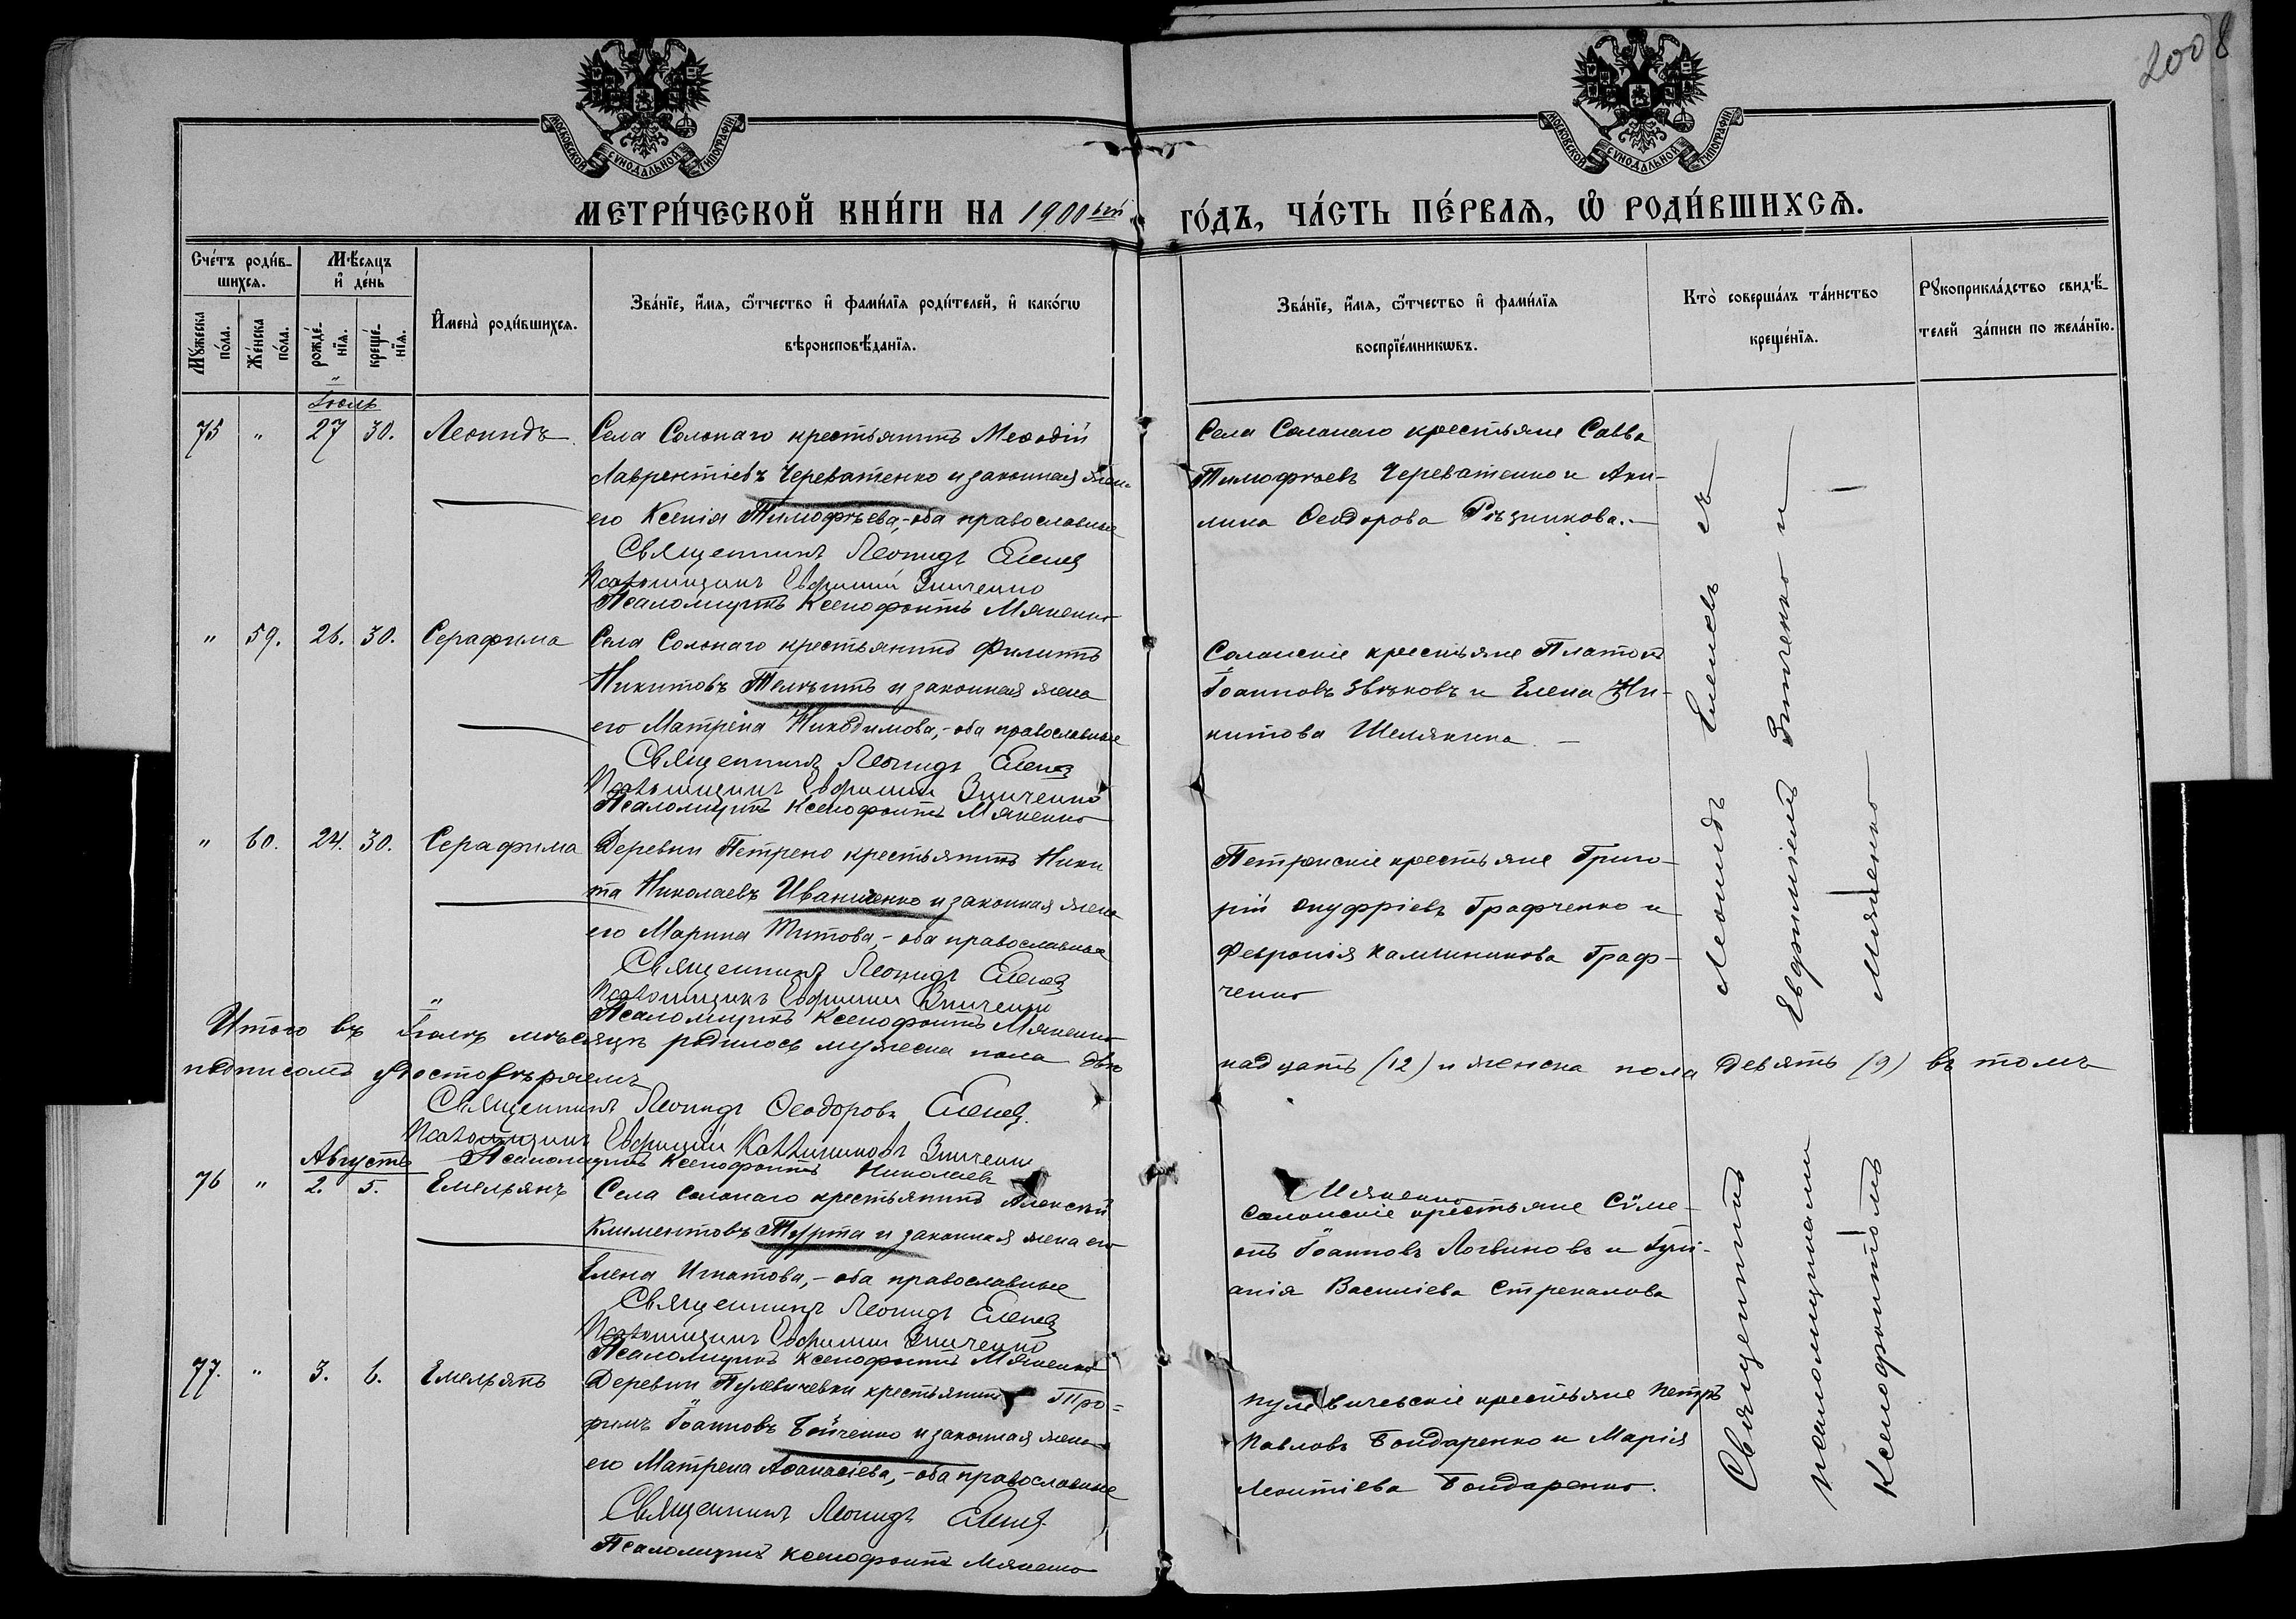 2008
МОСКОВСКОЙ СУНОДАЛЬНОЙ ТИПОГРАФІИ
МОСКОВСКОЙ СУНОДАЛЬНОЙ ТИПОГРАФІИ
МЕТРИ́ЧЕСКОЙ КНИ́ГИ НА 1900ый ГО́ДЪ, ЧА́СТЬ ПЕ́РВАѦ, Ѽ РОДИ́ВШИХСѦ.
Сче́тъ роди́в-
шихсѧ.
Мꙋ́жеска по́ла.
Же́нска по́ла.
Мѣ́сѧцъ
и҆ де́нь
рожде́-
нїѧ.
креще́-
нїѧ.
И҆мена̀ роди́вшихсѧ.
Зва́нїе, и҆́мѧ, ѻ҆́тчество и҆ фами́лїѧ роди́телей, и҆ како́гѡ
вѣроисповѣ́данїѧ.
Зва́нїе, и҆́мѧ, ѻ҆́тчество и҆ фами́лїѧ
воспрїе́мникѡвъ.
Кто̀ соверша́лъ та́инство
креще́нїѧ.
Рꙋкоприкла́дство свидѣ́-
телей за́писи по жела́нїю.
Іюль
75 " 27 30. Леонидъ Села Солонаго крестьянинъ Меѳодій
Лаврентіевъ Череватенко и законная жена
его Ксенія Тимофѣева,-оба православные
Священникъ Леонидъ Еленев
Псаломщикъ Евфимий Зинченко
Псаломщикъ Ксенофонтъ Мяненко
Села Солонаго крестьяне Савва
Тимофѣевъ Череватенко и Аки-
лина Ѳеодорова Рѣзникова.-
" 59. 26. 30. Серафима Села Солонаго крестьянинъ Филиппъ
Никитовъ и законная жена
его Матрена Никодимова,-оба православные
Священникъ Леонидъ Еленев
Псаломщикъ Евфимий Зинченко
Псаломщикъ Ксенофонтъ Мяненко
Солонскіе крестьяне Платонъ
Іоанновъ Звѣковъ и Елена Ни-
китова Шелякина. -
" 60. 24. 30. Серафима Деревни Петрено крестьянинъ Ники
та Николаевъ Иваненко и законная жена
его Марина Титова,-оба православные
Священникъ Леонидъ Еленев
Псаломщикъ Евфимий Зинченко
Псаломщикъ Ксенофонтъ Мяненко
Петренскіе крестьяне Григо-
рій Онуфріевъ Графченко и
Февронія Каллиникова Граф-
ченко
Итого въ Іюлѣ мѣсяцѣ родилось мужеска пола две
надцать (12) и женска пола девять (9) въ томъ
подписомъ удостовѣряемъ
Священникъ Леонидъ Ѳеодоровъ Еленев.
Псаломщикъ Евфимий Каллиниковъ Зинченко
Псаломщикъ Ксенофонтъ Николаевъ
Мяненко
Августъ
76 " 2. 5. Емельянъ Села Солонаго крестьянинъ Алексѣй
Климентовъ Турта и законная жена его
Елена Игнатова,-оба православные
Священникъ Леонидъ Еленев
Псаломщикъ Евфимий Зинченко
Псаломщикъ Ксенофонтъ Мяненко
Солонскіе крестьяне Сѵме-
онъ Іоанновъ Логвиновъ и Іулі-
анія Василіева Стрекалова
77. " 3. 6. Емельянъ Деревни Пулевичевки крестьянинъ Тро-
фимъ Іоанновъ Бойченко и законная жена
его Матрена Аѳанасіева,-оба православные
Священникъ Леонидъ Еленев
Псаломщикъ Ксенофонтъ Мяненко
Пулевичевскіе крестьяне Петръ
Павловъ Бондаренко и Марія
Леонтіева Бондаренко.
Священникъ Леонидъ Еленевъ съ
псаломщиками Евфиміемъ Зинченко и
Ксенофонтомъ Мяненко